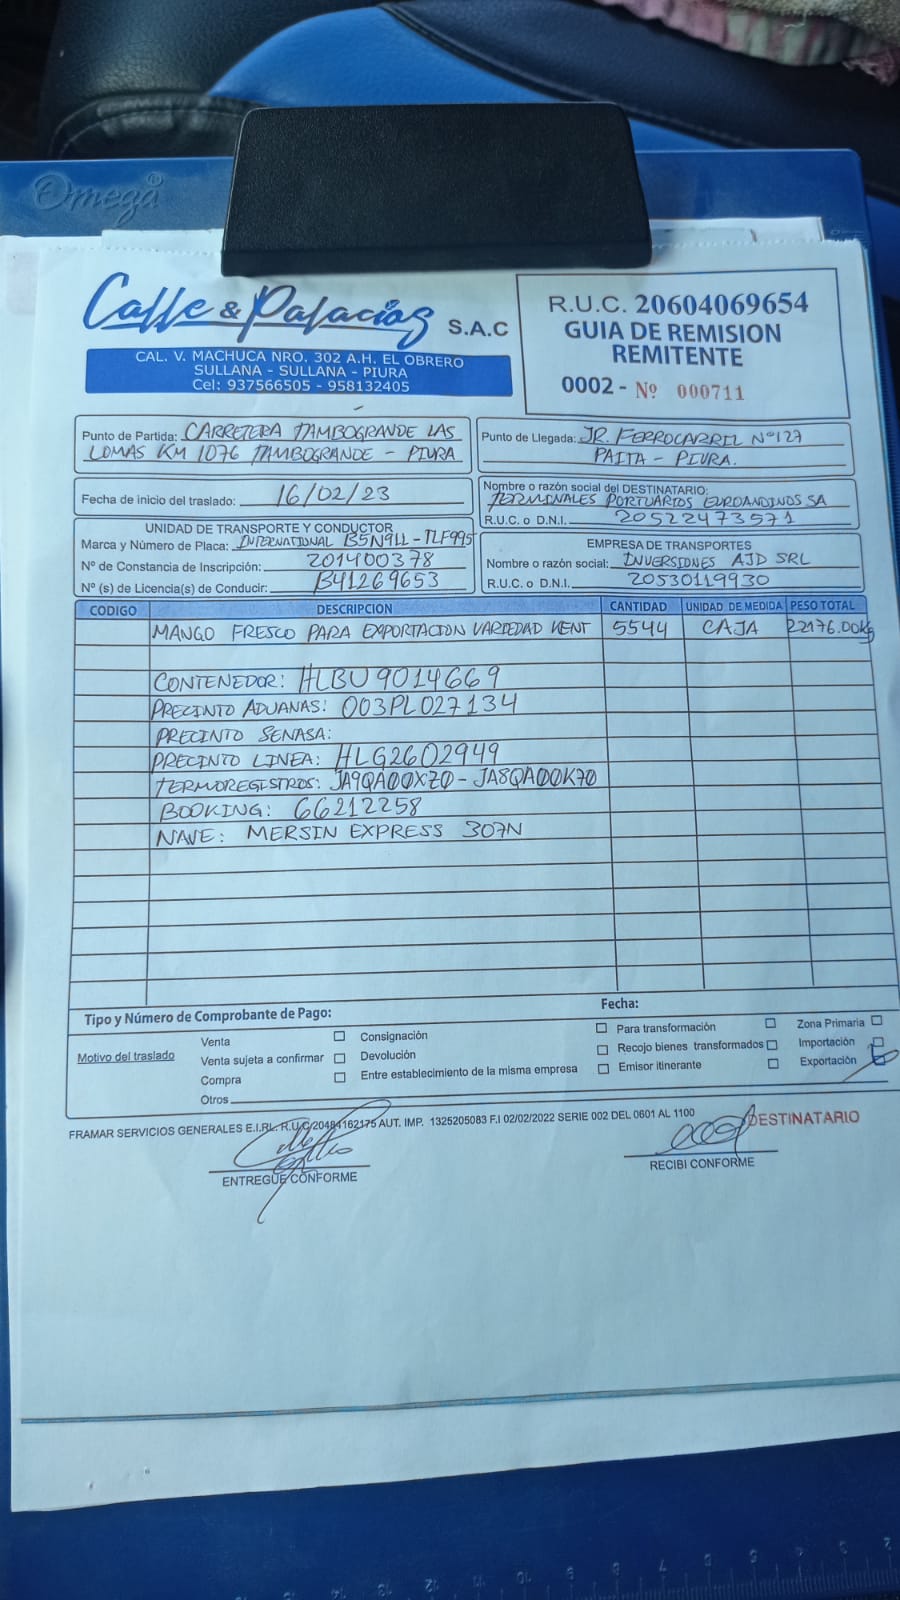 Omega
Calle & Palacios S.A.C
CAL. V. MACHUCA NRO. 302 A.H. EL OBRERO
SULLANA - SULLANA - PIURA
Cel: 937566505 - 958132405
R.U.C. 20604069654
GUIA DE REMISION
REMITENTE
0002 - Nº 000711
Punto de Partida: CARRETERA TAMBOGRANDE LAS
LOMAS KM 1076 TAMBOGRANDE - PIURA
Punto de Llegada: JR. FERROCARRIL Nº127
PAITA - PIURA.
Fecha de inicio del traslado: 16/02/23
Nombre o razón social del DESTINATARIO:
TERMINALES PORTUARIOS EUROANDINOS SA
R.U.C. o D.N.I. 20522473571
UNIDAD DE TRANSPORTE Y CONDUCTOR
Marca y Número de Placa: INTERNATIONAL B5N911 - TLF995
Nº de Constancia de Inscripción: 201400378
Nº (s) de Licencia(s) de Conducir: B41269653
EMPRESA DE TRANSPORTES
Nombre o razón social: INVERSIONES AJD SRL
R.U.C. o D.N.I. 20530119930
CODIGO DESCRIPCION CANTIDAD UNIDAD DE MEDIDA PESO TOTAL
MANGO FRESCO PARA EXPORTACION VARIEDAD KENT 5544 CAJA 22176.00kg
CONTENEDOR: HLBU 9014669
PRECINTO ADUANAS: 003PL027134
PRECINTO SENASA:
PRECINTO LINEA: HLG2602949
TERMOREGISTROS: JA9QA00XZ0 - JA8QA00K70
BOOKING: 66212258
NAVE: MERSIN EXPRESS 307N
Tipo y Número de Comprobante de Pago: Fecha:
Motivo del traslado
Venta
Venta sujeta a confirmar
Compra
Otros
Consignación
Devolución
Entre establecimiento de la misma empresa
Para transformación
Recojo bienes transformados
Emisor itinerante
Zona Primaria
Importación
Exportación
FRAMAR SERVICIOS GENERALES E.I.RL. R.U.C/20484162175 AUT. IMP. 1325205083 F.I 02/02/2022 SERIE 002 DEL 0601 AL 1100
DESTINATARIO
ENTREGUE CONFORME
RECIBI CONFORME